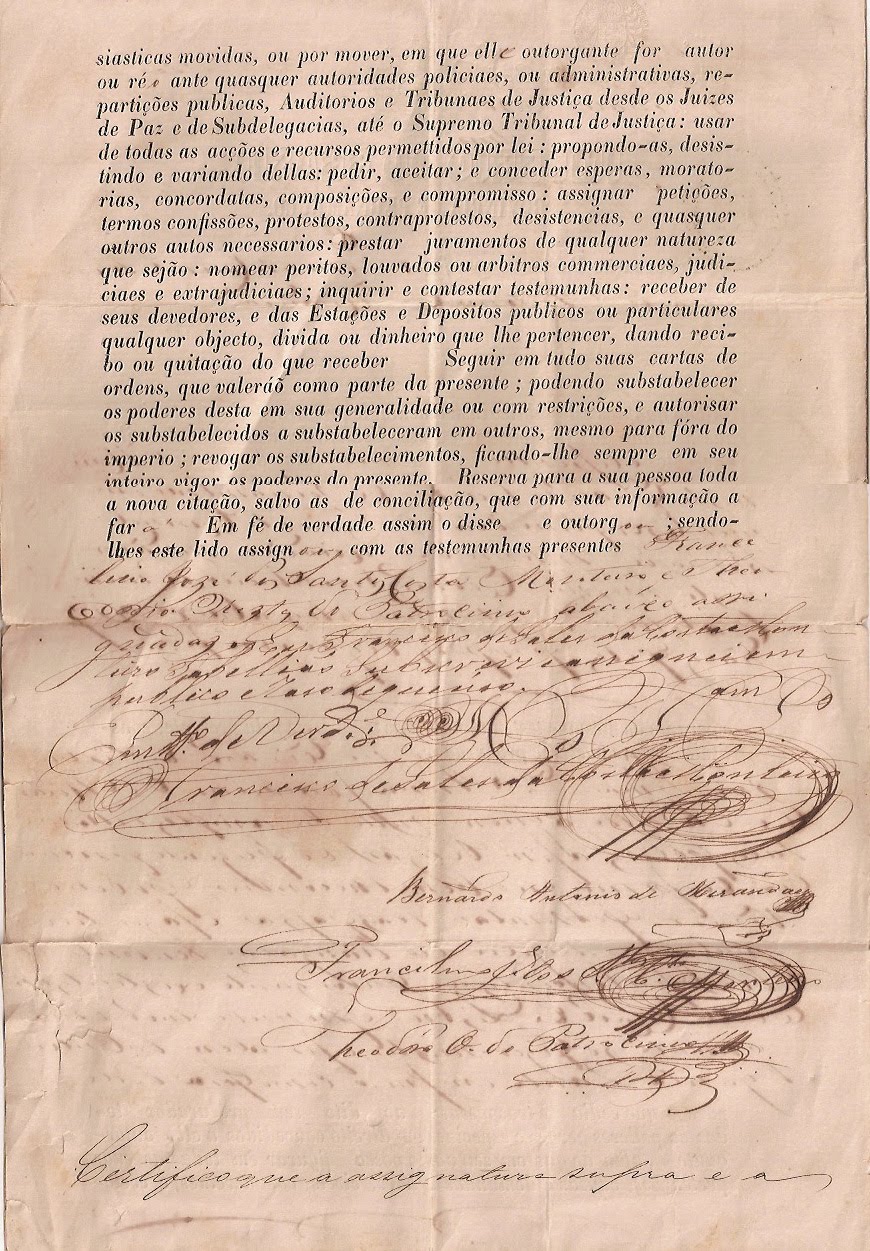 siasticas movidas, ou por mover, em que elle outorgante for autor
ou ré o ante quasquer autoridades policiaes, ou administrativas, re-
partições publicas, Auditorios e Tribunaes de Justiça desde os Juizes
de Paz e de Subdelegacias, até o Supremo Tribunal de Justiça: usar
de todas as acções e recursos permettidos por lei: propondo-as, desis-
tindo e variando dellas: pedir, aceitar; e conceder esperas, morato-
rias, concordatas, composições, e compromisso: assignar petições,
termos confissões, protestos, contraprotestos, desistencias, e quasquer
outros autos necessarios: prestar juramentos de qualquer natureza
que sejão: nomear peritos, louvados ou arbitros commerciaes, judi-
ciaes e extrajudiciaes; inquirir e contestar testemunhas: receber de
seus devedores, e das Estações e Depositos publicos ou particulares
qualquer objecto, divida ou dinheiro que lhe pertencer, dando reci-
bo ou quitação do que receber Seguir em tudo suas cartas de
ordens, que valeráõ como parte da presente; podendo substabelecer
os poderes desta em sua generalidade ou com restrições, e autorisar
os substabelecidos a substabeleceram em outros, mesmo para fóra do
imperio; revogar os substabelecimentos, ficando-lhe sempre em seu
inteiro vigor os poderes do presente. Reserva para a sua pessoa toda
a nova citação, salvo as de conciliação, que com sua informação a
far á Em fé de verdade assim o disse e outorgou; sendo-
lhes este lido assignou com as testemunhas presentes Franci
lino José dos Santos Costa Monteiro e Theo
doro de Patrocinio abaixo assi
gnadas e Eu Francisco de Sales da Costa Mon
teiro Tabellião Subscrevi e assignei em
publico e razo de que uso.
Em de Verd.e
Francisco de Sales da Costa Monteiro
Bernardo Antonio de Miranda
Francilino J. dos Monteiro
Theodoro O. do Patrocinio
Certifico que a assignatura supra e a